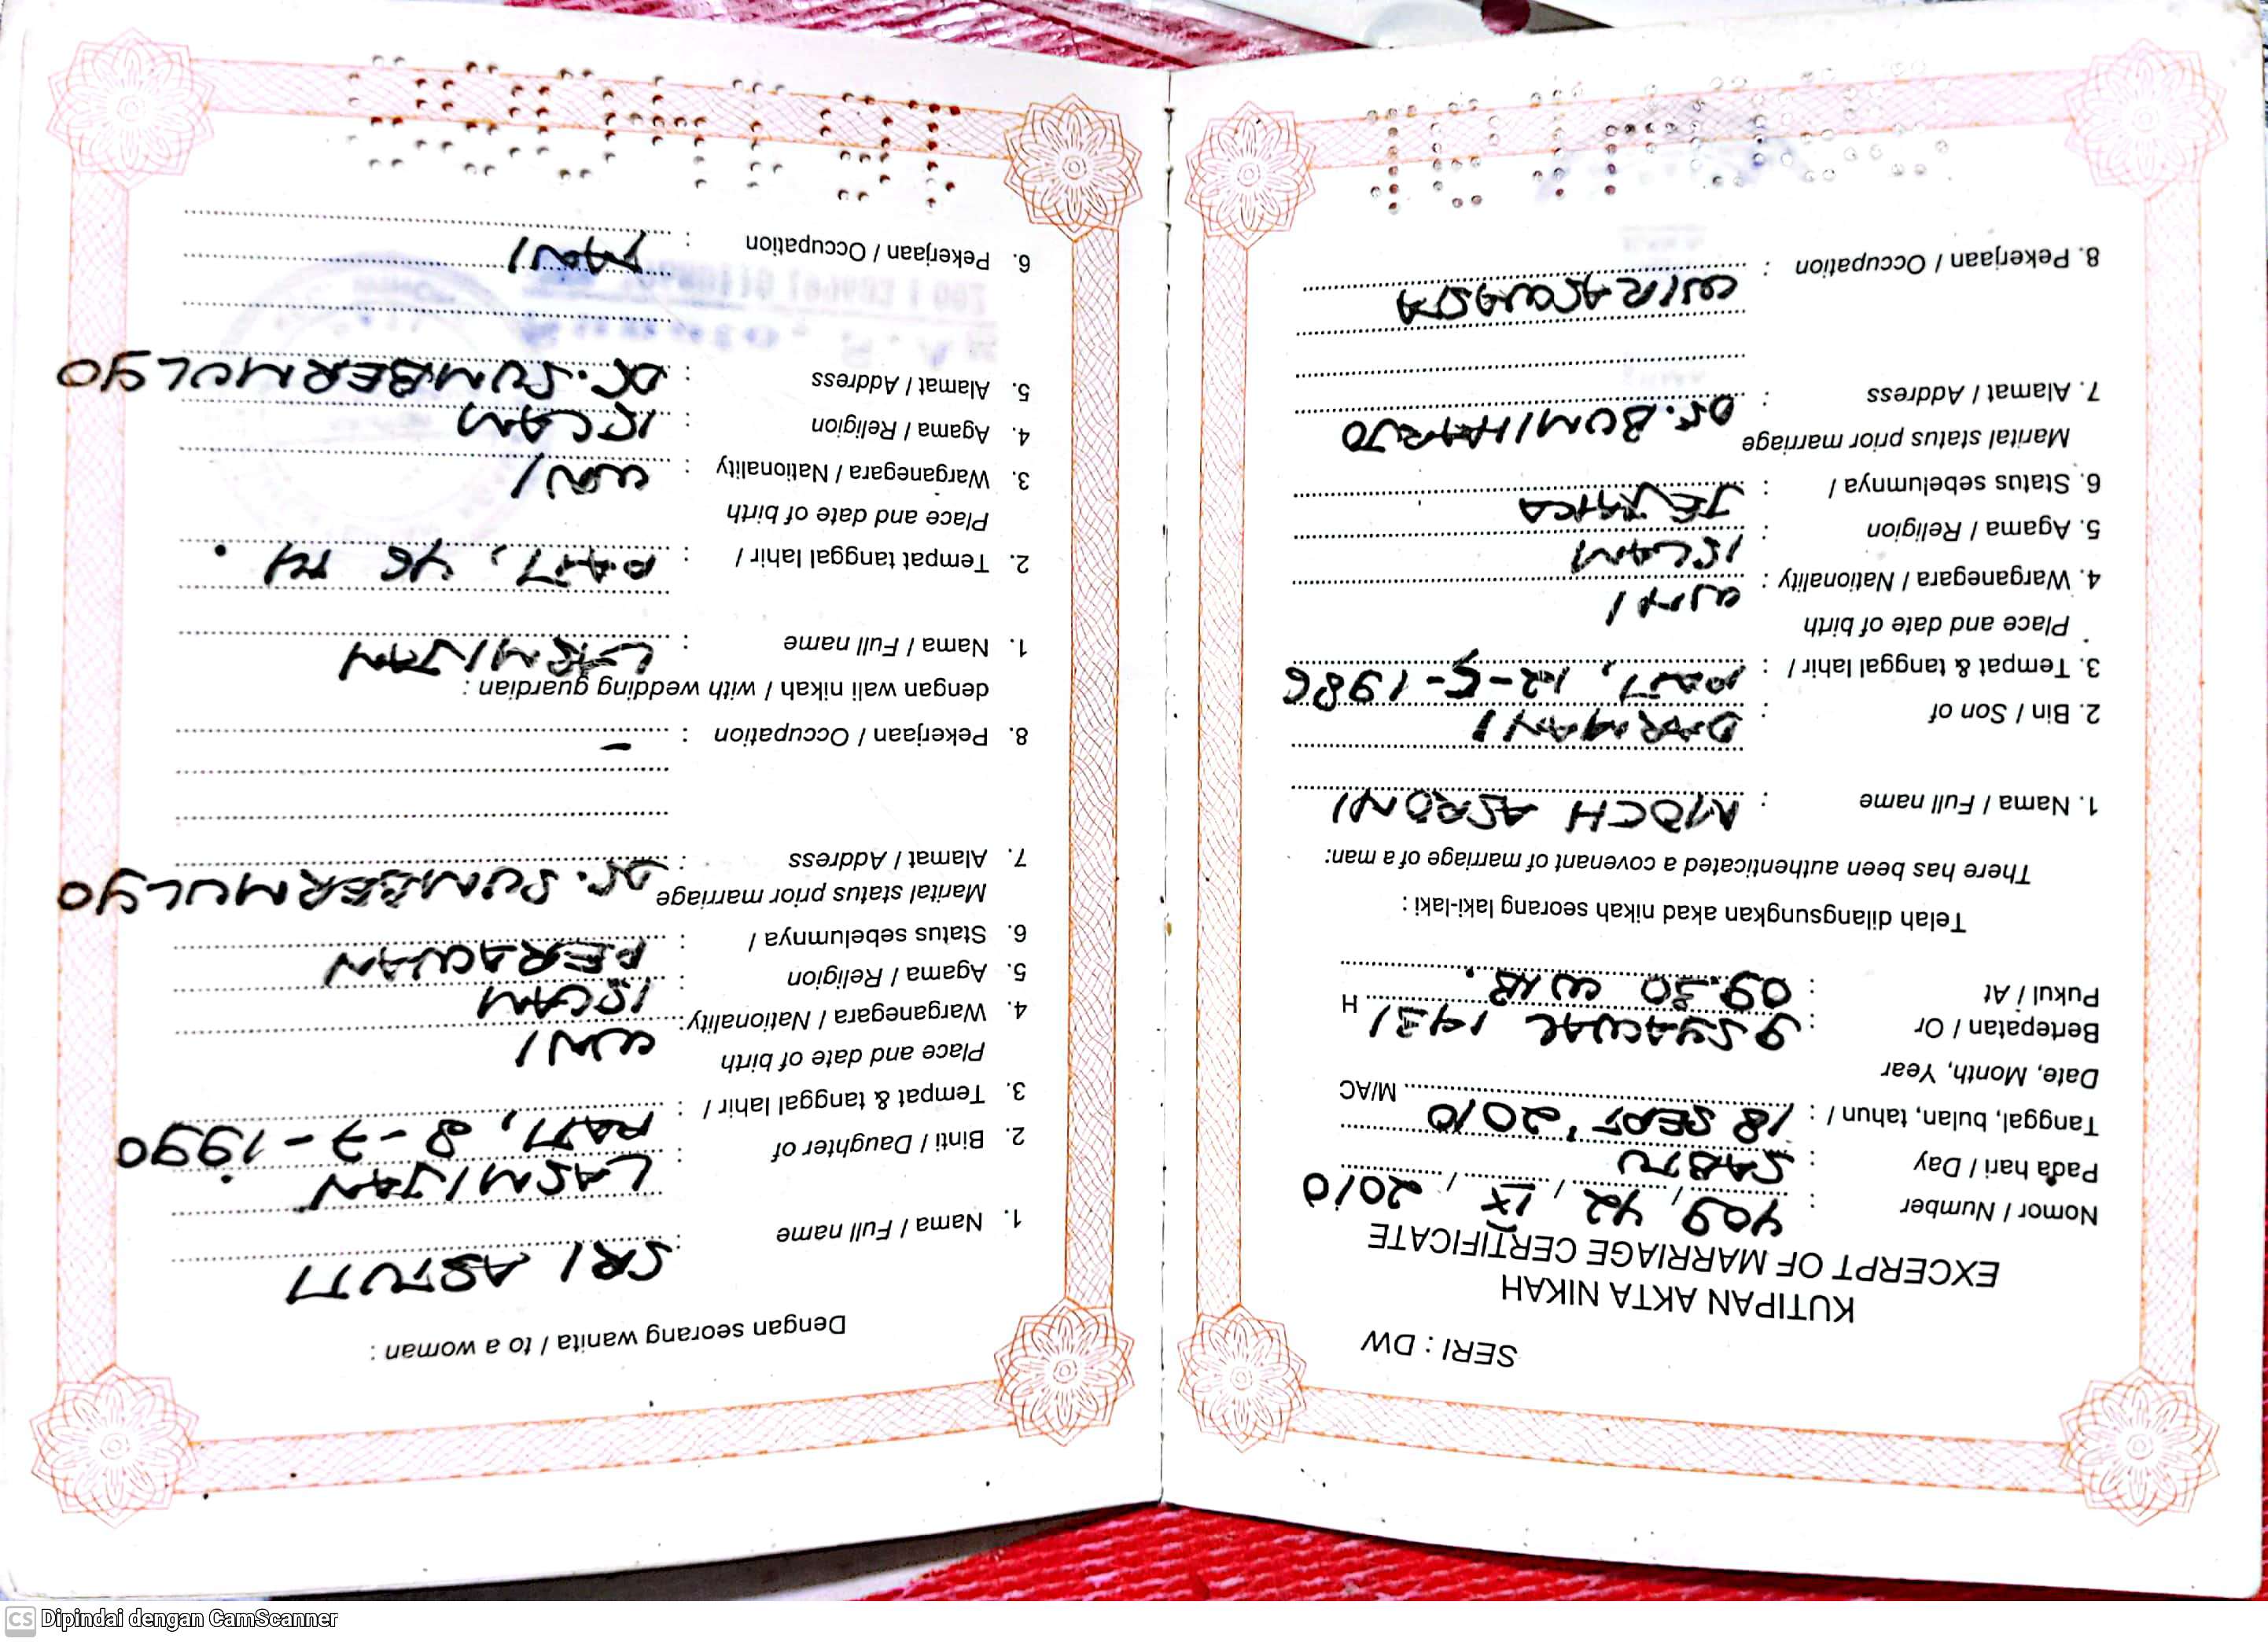 SERI : DW
KUTIPAN AKTA NIKAH
EXCERPT OF MARRIAGE CERTIFICATE
Nomor / Number : 409 / 42 / IX / 2010
Pada hari / Day : SABTU
Tanggal, bulan, tahun / : 18 SEPT, 2010 M/AC
Date, Month, Year
Bertepatan / Or : 9 SYAWAL 1431 H
Pukul / At : 09.30 WIB.
Telah dilangsungkan akad nikah seorang laki-laki :
There has been authenticated a covenant of marriage of a man:
1. Nama / Full name : MOCH ASRONI
2. Bin / Son of : DARMANI
3. Tempat & tanggal lahir / : PATI, 12-5-1986
Place and date of birth
4. Warganegara / Nationality : WNI
5. Agama / Religion : ISLAM
6. Status sebelumnya / : JEJAKA
Marital status prior marriage
7. Alamat / Address : DS. BUMIHARJO
8. Pekerjaan / Occupation : WIRASWASTA
Dengan seorang wanita / to a woman :
1. Nama / Full name : SRI ASTUTI
2. Binti / Daughter of : LASMIJAN
3. Tempat & tanggal lahir / : PATI, 8-7-1990
Place and date of birth
4. Warganegara / Nationality: WNI
5. Agama / Religion : ISLAM
6. Status sebelumnya / : PERAWAN
Marital status prior marriage
7. Alamat / Address : DS. SUMBERMULYO
8. Pekerjaan / Occupation : -
dengan wali nikah / with wedding guardian :
1. Nama / Full name :
2. Tempat tanggal lahir / : PATI, 46 TH.
Place and date of birth
3. Warganegara / Nationality : WNI
4. Agama / Religion : ISLAM
5. Alamat / Address : DS. SUMBERMULYO
6. Pekerjaan / Occupation : TANI
CS Dipindai dengan CamScanner